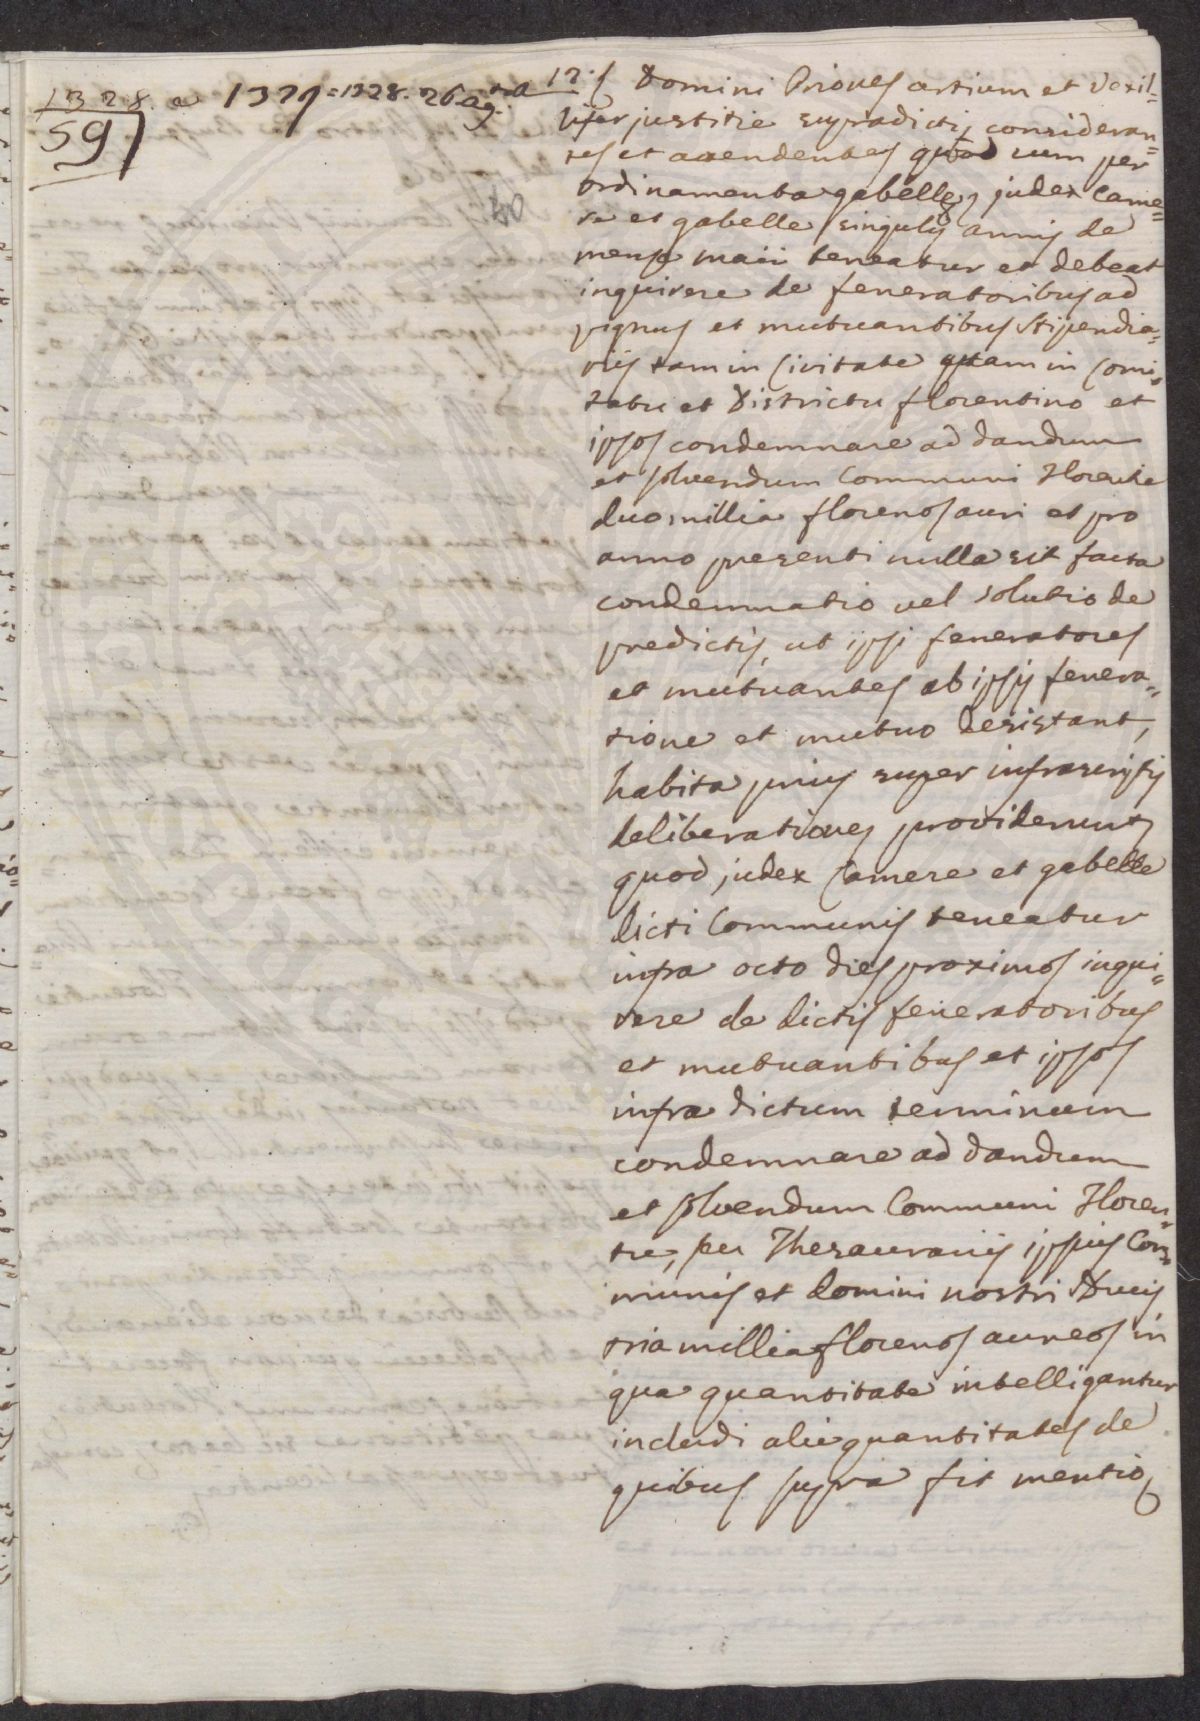 1328. a 1329 = 1328. 26 ag.
597
40
12. Domini Priores artium et Vexil=
lifer justitie supradicti, consideran=
tes et attendentes quod cum per
ordinamenta gabelle, judex Came=
re et gabelle singulis annis de
mense maii teneatur et debeat
inquirere de feneratoribus ad
pignus et mutuantibus stipendia=
riis tam in Civitate quam in Comi=
tatu et Districtu florentino et
ipsos condemnare ad dandum
et solvendum Communi Florentie
duomillia florenos auri et pro
anno presenti nulla sit facta
condemnatio vel solutio de
predictis, ut ipsi feneratores
et mutuantes ab ipsis fenera=
tione et mutuo desistant,
habita prius super infrascriptis
deliberatione, providerunt
quod judex Camere et gabelle
dicti Communis teneatur
infra octo dies proximos inqui=
rere de dictis feneratoribus
et mutuantibus et ipsos
infra dictum terminum
condemnare ad dandum
et solvendum Communi Floren=
tie, per Thesaurariis ipsius Com=
munis et domini nostri Ducis
tria millia florenos aureos in
qua quantitate intelligantur
includi alie quantitates de
quibus supra fit mentio